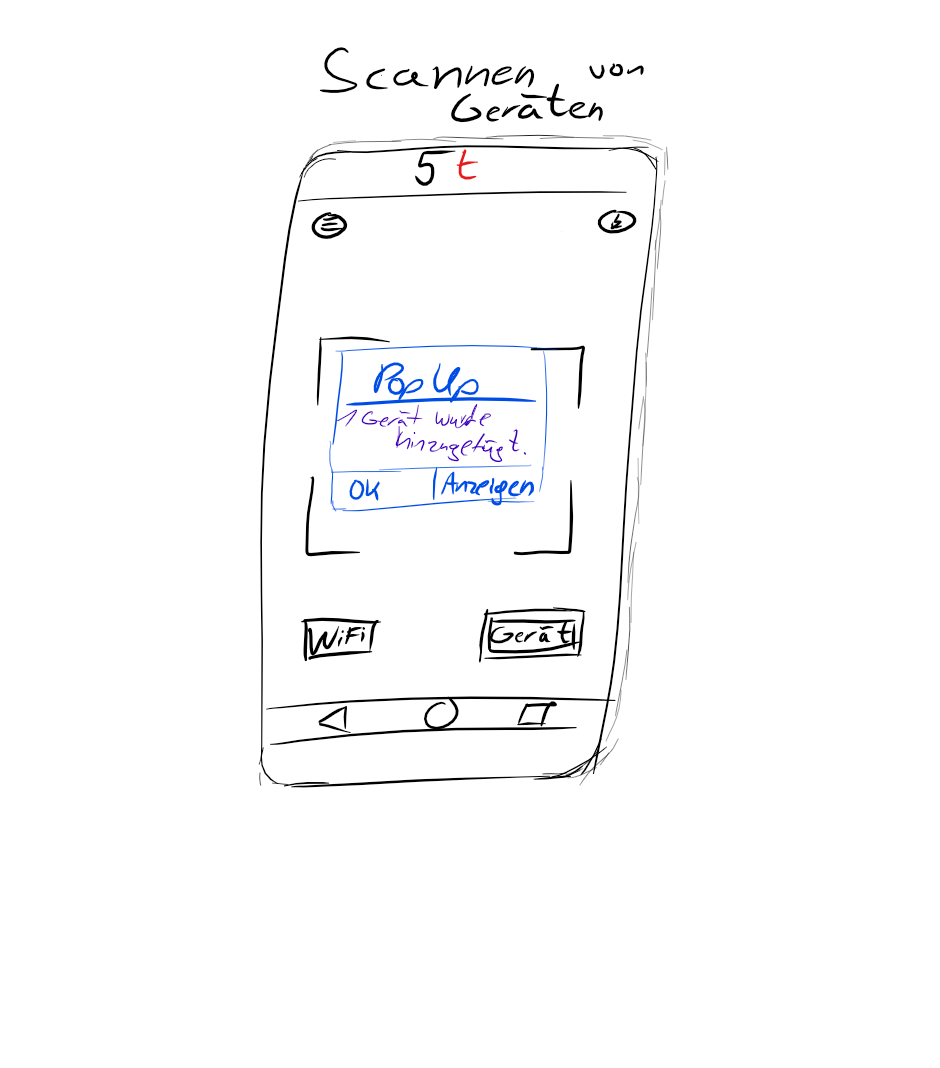 Scannen von
Geräten
5 t
Pop Up
1 Gerät wurde
hinzugefügt.
OK Anzeigen
WiFi Gerät